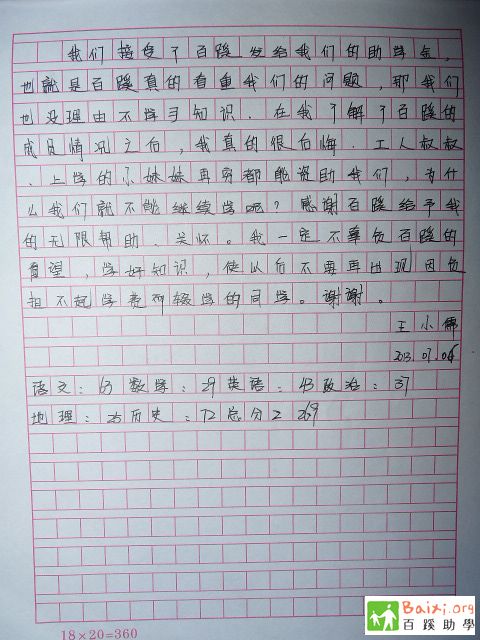 我们接受了百蹊发给我们的助学金,
也就是百蹊真的看重我们的问题,那我们
也没理由不学于知识.在我了解了百蹊的
成员情况之后,我真的很后悔.工人叔叔
、上学的小妹妹再穷都能资助我们,为什
么我们就不能继续学呢?感谢百蹊给予我
的无限帮助、关怀。我一定不辜负百蹊的
期望,学好知识,使以后不要再出现因负
担不起学费而辍学的同学。谢谢。
王小儒
2013.07.06
语文:63数学:29英语:43政治:37
地理:25历史:72总分:269
18×20=360
Baixi.org
百蹊助學